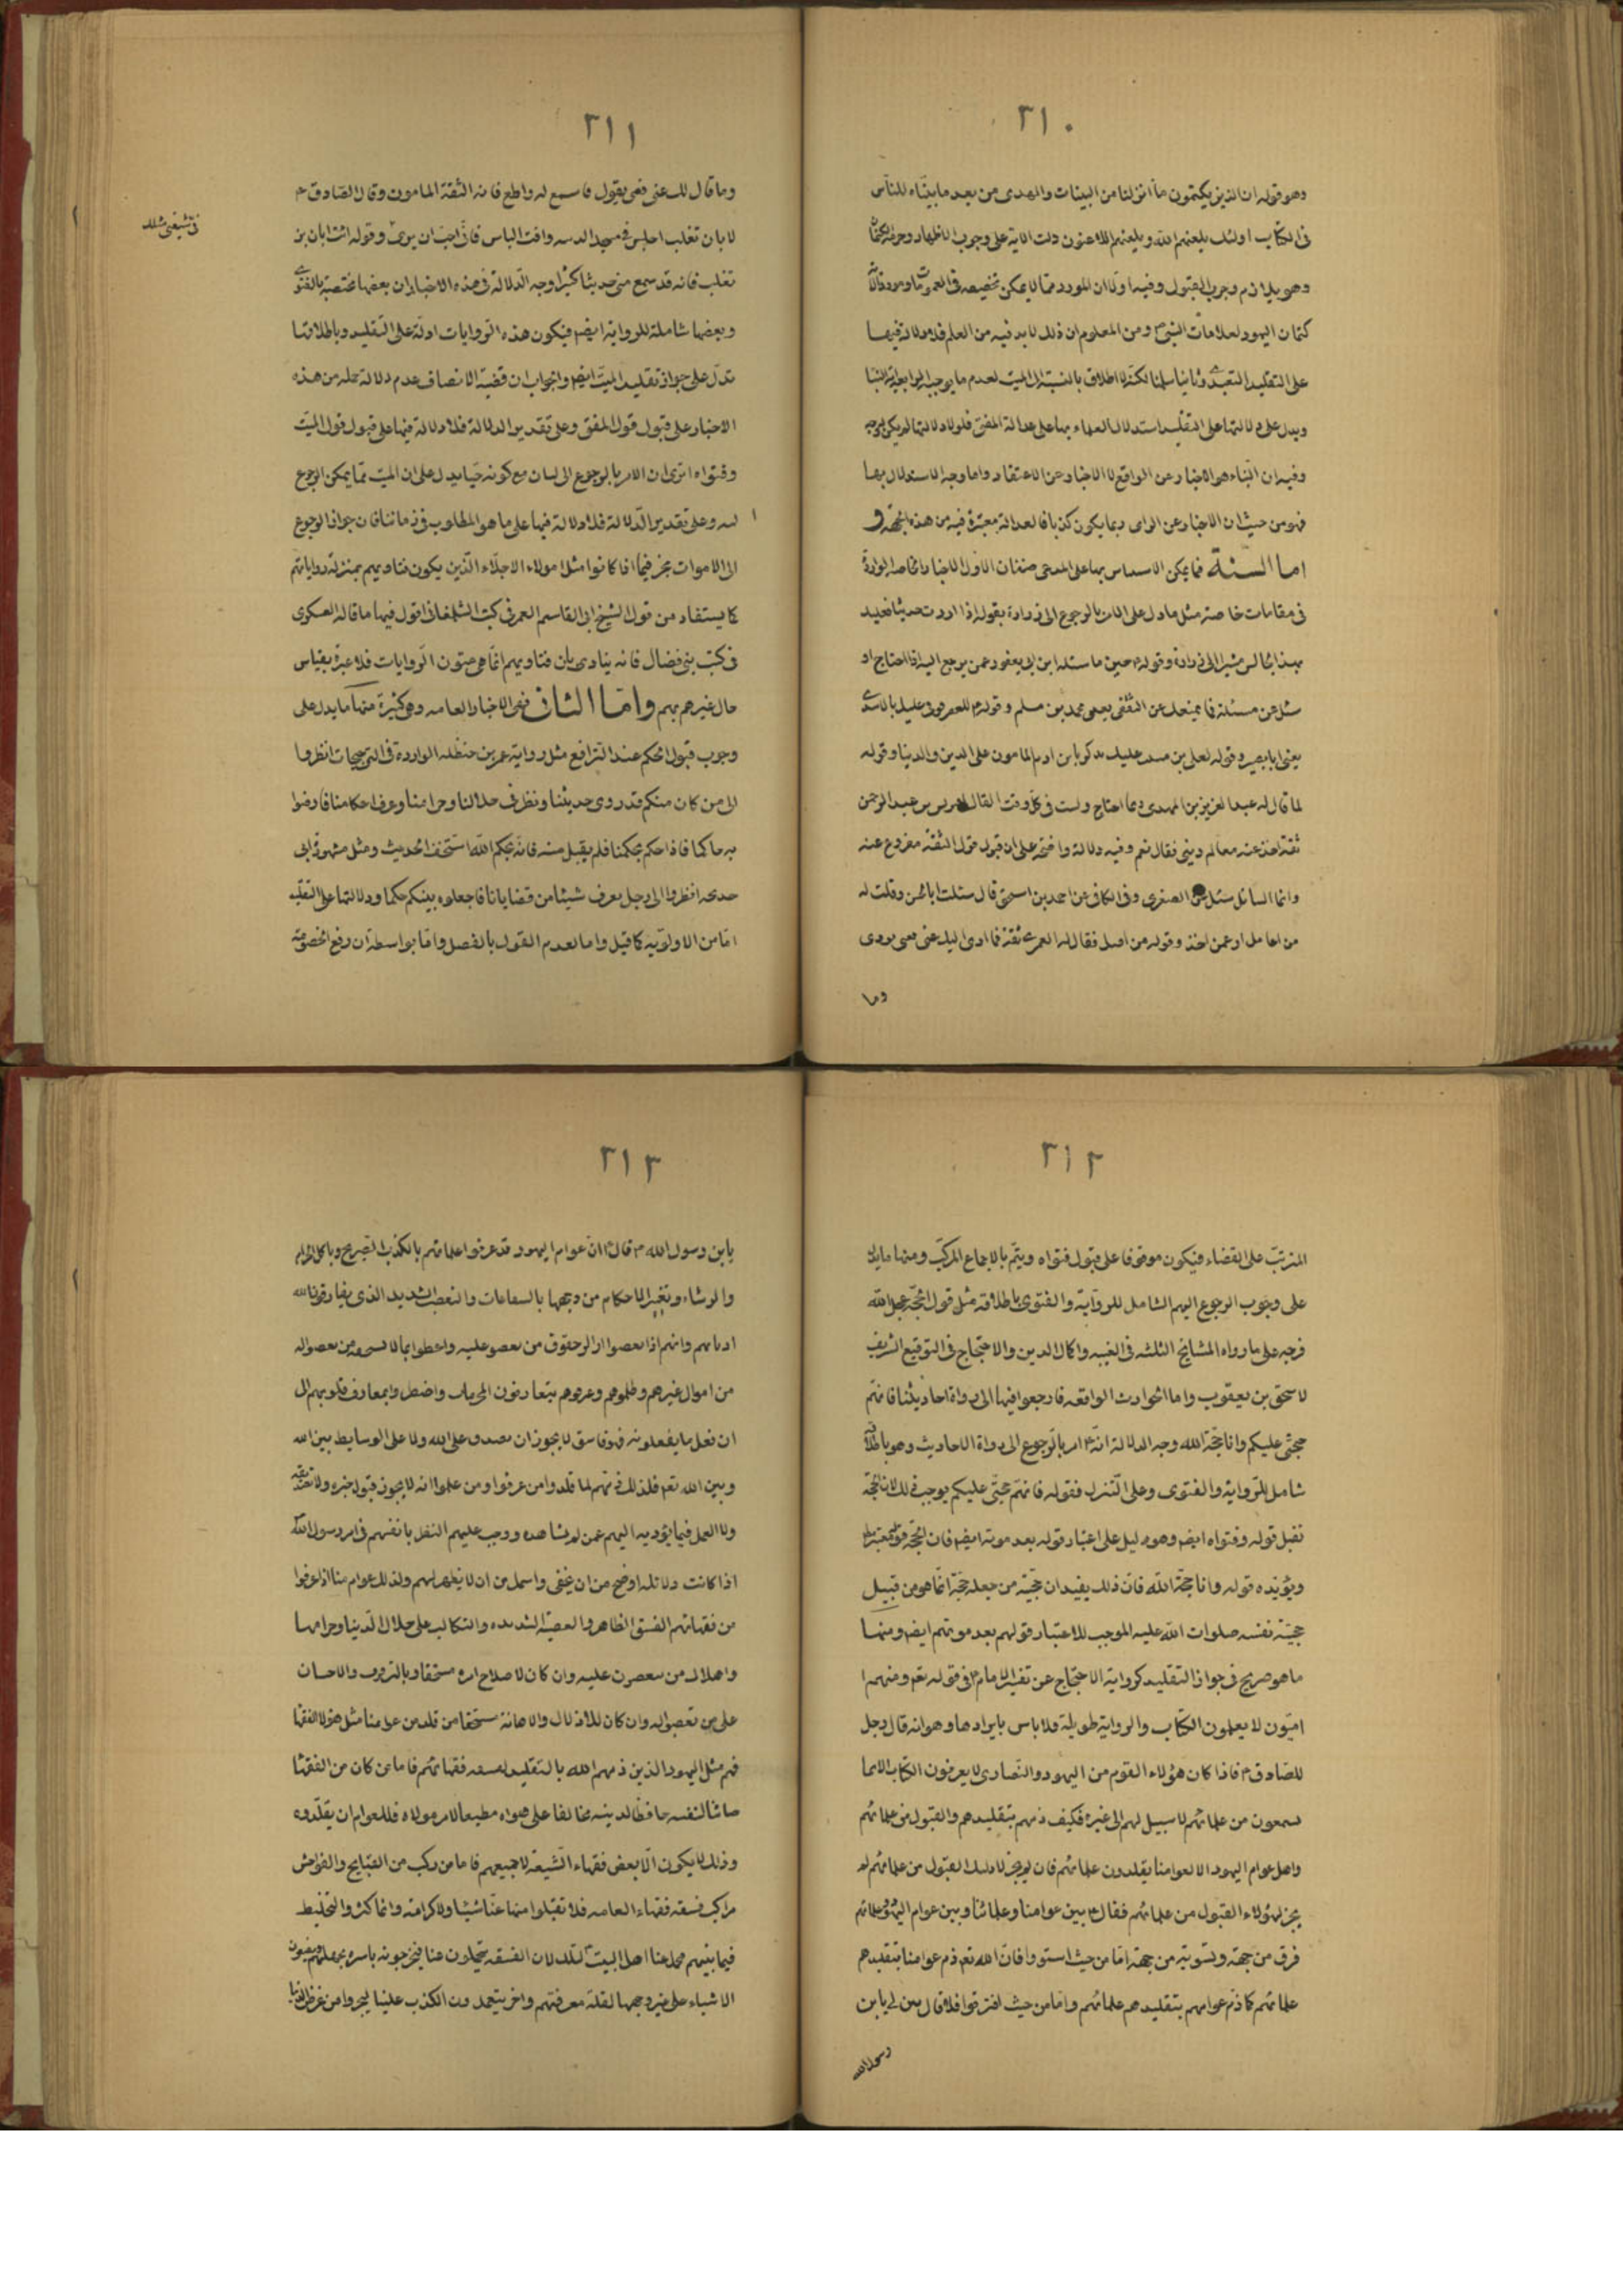 ٢١٠
وهو قوله ان الذين يكتمون ما انزلنا من البينات والهدى من بعد ما بيّناه للناس
فى الكتاب اولئك يلعنهم الله ويلعنهم اللاعنون دلت الاية على وجوب الاظهار وحرمة الكتمان
وهو يلازم وجوب القبول وفيه اولا ان المورد مما لا يمكن تخصيصه فى العمومات
كتمان اليهود لعلامات النبى ص ومن المعلوم ان ذلك لا بد فيه من العلم فلا دلالة فيها
على التقليد التعبدى وثانيا سلمنا لكنه لا اطلاق بالنسبة الى الميت لعدم ما يوجب
ويدل على دلالتها على التقليد استدلال العلماء بها على عدالة المفتى فلولا دلالتها لم يكن لوجه
وفيه ان النباء هو الاخبار عن الواقع لا الاخبار عن الاعتقاد واما وجه الاستدلال بها
فهو من حيث ان الاخبار عن الراى ربما يكون كذبا فالعدالة معتبرة فيه من هذه الجهة و
اما السنة فما يمكن الاستدلال بها على المدعى صنفان الاول الاخبار الخاصة الواردة
فى مقامات خاصة مثل ما دل على الامر بالرجوع الى زرارة بقوله اذا اردت حديثا فعليك
بهذا الجالس مشيرا الى زرارة وقوله ع حين ما سئله ابن ابى يعفور عمن يرجع اليه اذا احتاج او
سئل عن مسئلة فما يمنعك عن الثقفى يعنى محمد بن مسلم وقوله ع للعقرقوفى عليك بالاسدى
يعنى ابا بصير وقوله لعلى بن مسيب عليك بزكريا بن ادم المامون على الدين والدنيا وقوله
لما قال له عبد العزيز بن المهدى ربما احتاج ولست فى كل وقت القاك افيونس بن عبد الرحمن
ثقة اخذ عنه معالم دينى فقال نعم وفيه دلالة واضحة على ان قبول قول الثقة مفروغ عنه
وانما السائل سئل عن الصغرى وفى الكافى عن احمد بن اسحق قال سئلت ابا الحسن وقلت له
من اعامل او عمن اخذ وقول من اقبل فقال له العمرى ثقة فما ادى اليك عنى فعنى يودى
وما
٢١١
وما قال لك عنى فعنى يقول فاسمع له واطع فانه الثقة المامون وقال الصادق ع
لابان تغلب اجلس فى مسجد المدينه وافت الناس فانى احب ان يرى وقوله ائت ابان بن
تغلب فانه قد سمع منى حديثا كثيرا وجه الدلالة فى هذه الاخبار ان بعضها مختصة بالفتوى
وبعضها شاملة للرواية ايض فيكون هذه الروايات ادلة على التقليد وباطلاقها
تدل على جواز تقليد الميت ايض والجواب ان قضية الانصاف عدم دلالة جملة من هذه
الاخبار على قبول قول المفتى وعلى تقدير الدلالة فلا دلالة فيها على قبول قول الميت
وفتواه اترى ان الامر بالرجوع الى ابان مع كونه حيا يدل على ان الميت مما يمكن الرجوع
اليه وعلى تقدير الدلالة فلا دلالة فيها على ما هو المطلوب فى زماننا فان جواز الرجوع
الى الاموات نجز فيما اذا كانوا مثل هولاء الاجلاء الذين يكون فتاويهم بمنزلة رواياتهم
كما يستفاد من قول الشيخ ابى القاسم العمرى فى كتب الشلمغانى اقول فيها ما قاله العسكرى
فى كتب بنى فضال فانه ينادى بان فتاويهم انما هى متون الروايات فلا عبرة بقياس
حال غيرهم بهم واما الثانى ففى الاخبار العامه وهى كثيرة منها ما يدل على
وجوب قبول الحكم عند الترافع مثل رواية عمر بن حنظله الواردة فى الترجيحات انظروا
الى من كان منكم قد روى حديثنا ونظر فى حلالنا وحرامنا وعرف احكامنا فارضوا
به حاكما فاذا حكم بحكمنا فلم يقبل منه فانه بحكم الله استخف الحديث ومثل مشهورة ابى
خديجه انظروا الى رجل يعرف شيئا من قضايانا فاجعلوه بينكم حكما ودلالتها على التقليد
اما من الاولويه كما قيل واما لعدم القول بالفصل واما بواسطة ان رفع الخصومة
٢١٢
المترتب على القضاء فيكون موقوفا على قبول فتواه ويتم بالاجماع المركب ومنها ما يدل
على وجوب الرجوع اليهم الشامل للرواية والفتوى باطلاقه مثل قول الحجة عجل الله
فرجه على ما رواه المشايخ الثلثه فى الغيبه واكمال الدين والاحتجاج فى التوقيع الشريف
لاسحق بن يعقوب واما الحوادث الواقعه فارجعوا فيها الى رواة احاديثنا فانهم
حجتى عليكم وانا حجة الله وجه الدلالة انه ع امر بالرجوع الى رواة الاحاديث وهو باطلاقه
شامل للرواية والفتوى وعلى التنزل فقوله فانهم حجتى عليكم يوجب ذلك لان الحجة
تقبل قوله وفتواه ايض وهو دليل على اعتبار قوله بعد موته ايض فان الحجة قوله معتبر
ويؤيده قوله وانا حجة الله فان ذلك يفيد ان حجية من جعله حجة انما هو من قبيل
حجية نفسه صلوات الله عليه الموجب للاعتبار قولهم بعد موتهم ايض ومنها
ما هو صريح فى جواز التقليد كرواية الاحتجاج عن تفسير الامام ع فى قوله تعم ومنهم
اميون لا يعلمون الكتاب والرواية طويلة فلا باس بايرادها وهو انه قال رجل
للصادق ع فاذا كان هؤلاء القوم من اليهود والنصارى لا يعرفون الكتاب الا بما
يسمعون من علمائهم لا سبيل لهم الى غيره فكيف ذمهم بتقليدهم والقبول من علمائهم
وهل عوام اليهود الا كعوامنا يقلدون علمائهم فان لم يجز لاولئك القبول من علمائهم لم
يجز لهؤلاء القبول من علمائهم فقال ع بين عوامنا وعلمائنا وبين عوام اليهود وعلمائهم
فرق من جهة وتسوية من جهة اما من حيث استووا فان الله تعم ذم عوامنا بتقليدهم
علمائهم كما ذم عوامهم بتقليدهم علمائهم واما من حيث افترقوا فلا قال بين لى يا بن
رسول الله
٢١٣
يا بن رسول الله ص قال ع ان عوام اليهود قد عرفوا علمائهم بالكذب الصريح وباكل الحرام
والرشاء وبتغير الاحكام من وجهها بالشفاعات والتعصب الشديد الذى يفارقون الله
اديانهم وانهم اذا تعصبوا ازالو حقوق من تعصبو عليه واعطوا بما لا يستحقه من تعصبوا له
من اموال غيرهم وظلموهم وعرفوهم يتعارفون المحرمات واضطروا بمعارف قلوبهم الى
ان فعل ما يفعلونه فهو فاسق لا يجوز ان يصدق على الله ولا على الوسايط بين الله
وبين الله تعم فلذلك ذمهم لما قلدوا من عرفوا ومن علموا انه لا يجوز قبول خبره ولا تصديقه
ولا العمل فيما يؤديه اليهم عمن لم يشاهده ووجب عليهم النظر بانفسهم فى امر رسول الله
اذ كانت دلائله اوضح من ان يخفى واشهر من ان لا يظهر لهم وكذلك عوام منا اذا عرفوا
من فقهائهم الفسق الظاهر والعصبية الشديده والتكالب على حلال الدنيا وحرامها
واهلاك من يتعصبون عليه وان كان لاصلاح امره مستحقا وبالترفرف والاحسان
على من تعصبوا له وان كان للاذلال والاهانة مستحقا من قلد من عوامنا مثل هؤلاء الفقهاء
فهم مثل اليهود الذين ذمهم الله بالتقليد لفسقه فقهائهم فاما من كان من الفقهاء
صائنا لنفسه حافظا لدينه مخالفا على هواه مطيعا لامر مولاه فللعوام ان يقلدوه
وذلك لا يكون الا بعض فقهاء الشيعة لا جميعهم فاما من ركب من القبايح والفواحش
مراكب فسقة فقهاء العامه فلا تقبلوا منهما عنا شيئا ولا كرامة وانما كثر والتخليط
فيما يتحمل عنا اهل البيت لتلك لان الفسقه يتحملون عنا فيحرفونه باسره بجهلهم ويضعون
الاشياء على غير وجهها لقلة معرفتهم واخر يتعمدون الكذب علينا ليجروا من عرض الدنيا